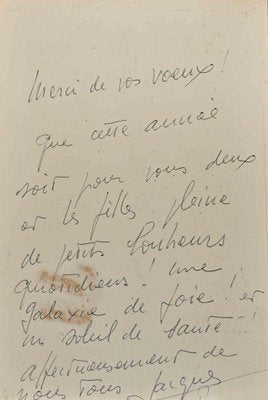 Merci de vos voeux !
Que cette année
soit pour vous deux
et les filles pleine
de petits bonheurs
quotidiens ! une
galaxie de joie ! et
un soleil de santé !
affectueusement de
nous tous Jacques